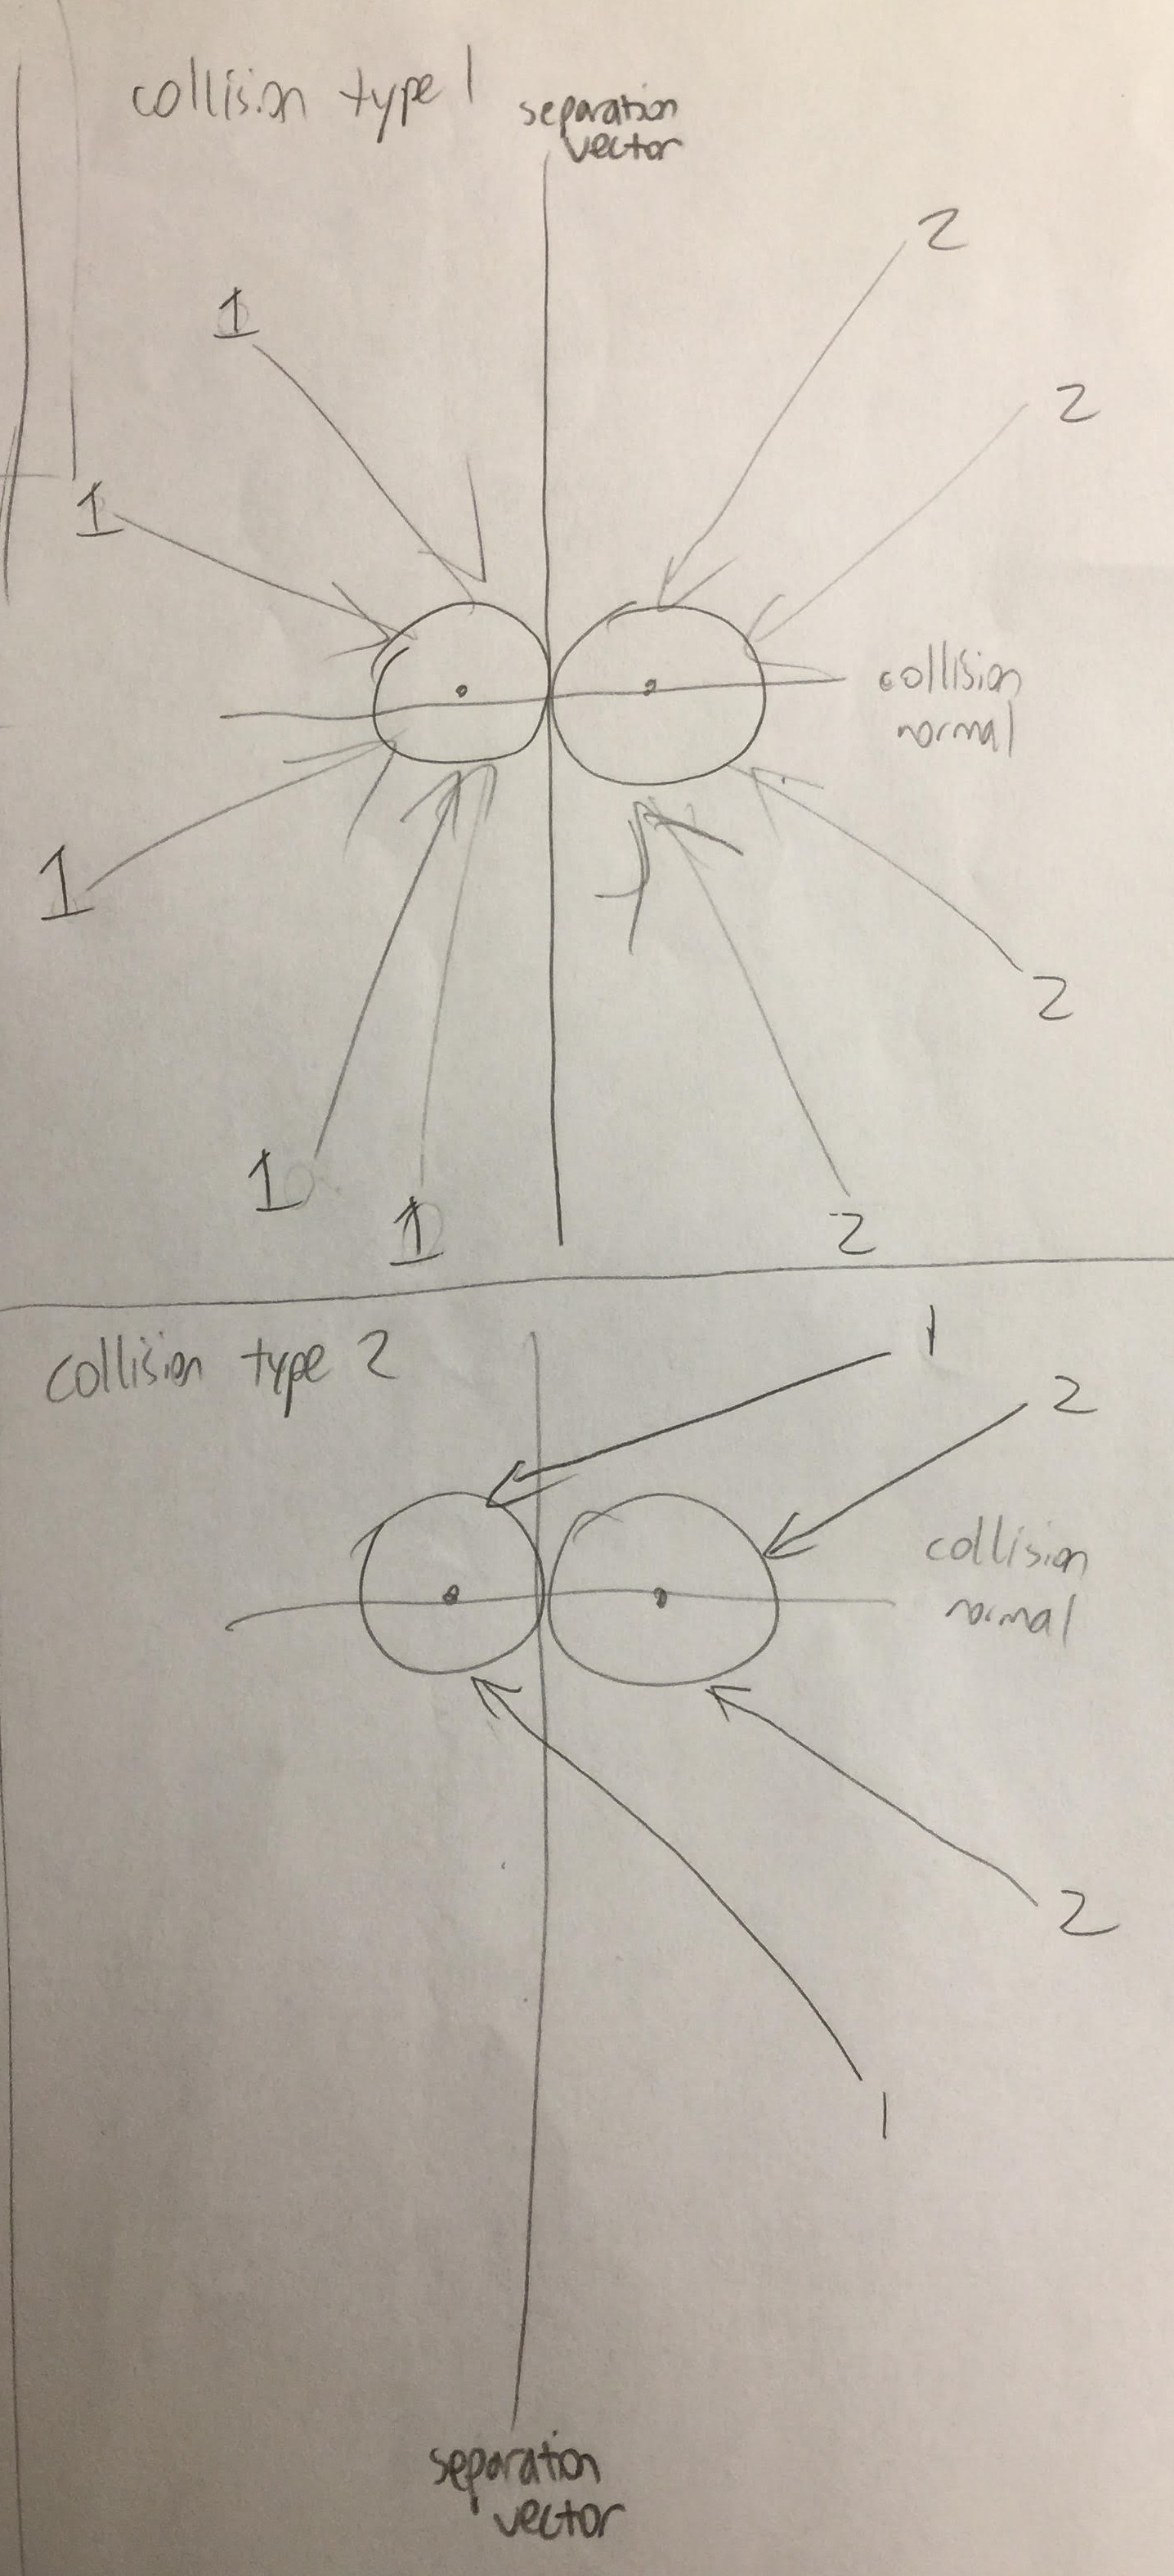 collision type 1
separation
vector
2
1
2
1
collision
normal
1
2
1
1
2
collision type 2
1
2
collision
normal
2
1
separation
vector